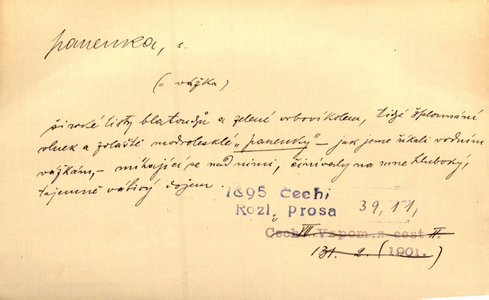 panenka, f.
(= vážka)
široké listy blatouchů a zelené vrboví kolem, tiché šplounání
vlnek a zvláště modrolesklé „panenky" – jak jsme říkali vodním
vážkám, – míhající se nad nimi, činívaly na mne hluboký,
tajemně vábivý dojem.
1895 Čech
Rozl. Prosa 39, 11,
Čech VII. Vzpom. z cest II.
131. 2. (1901.)